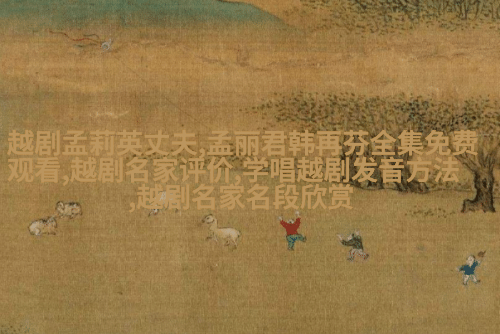 越剧孟莉英丈夫,孟丽君韩再芬全集免费
观看,越剧名家评价,学唱越剧发音方法
,越剧名家名段欣赏